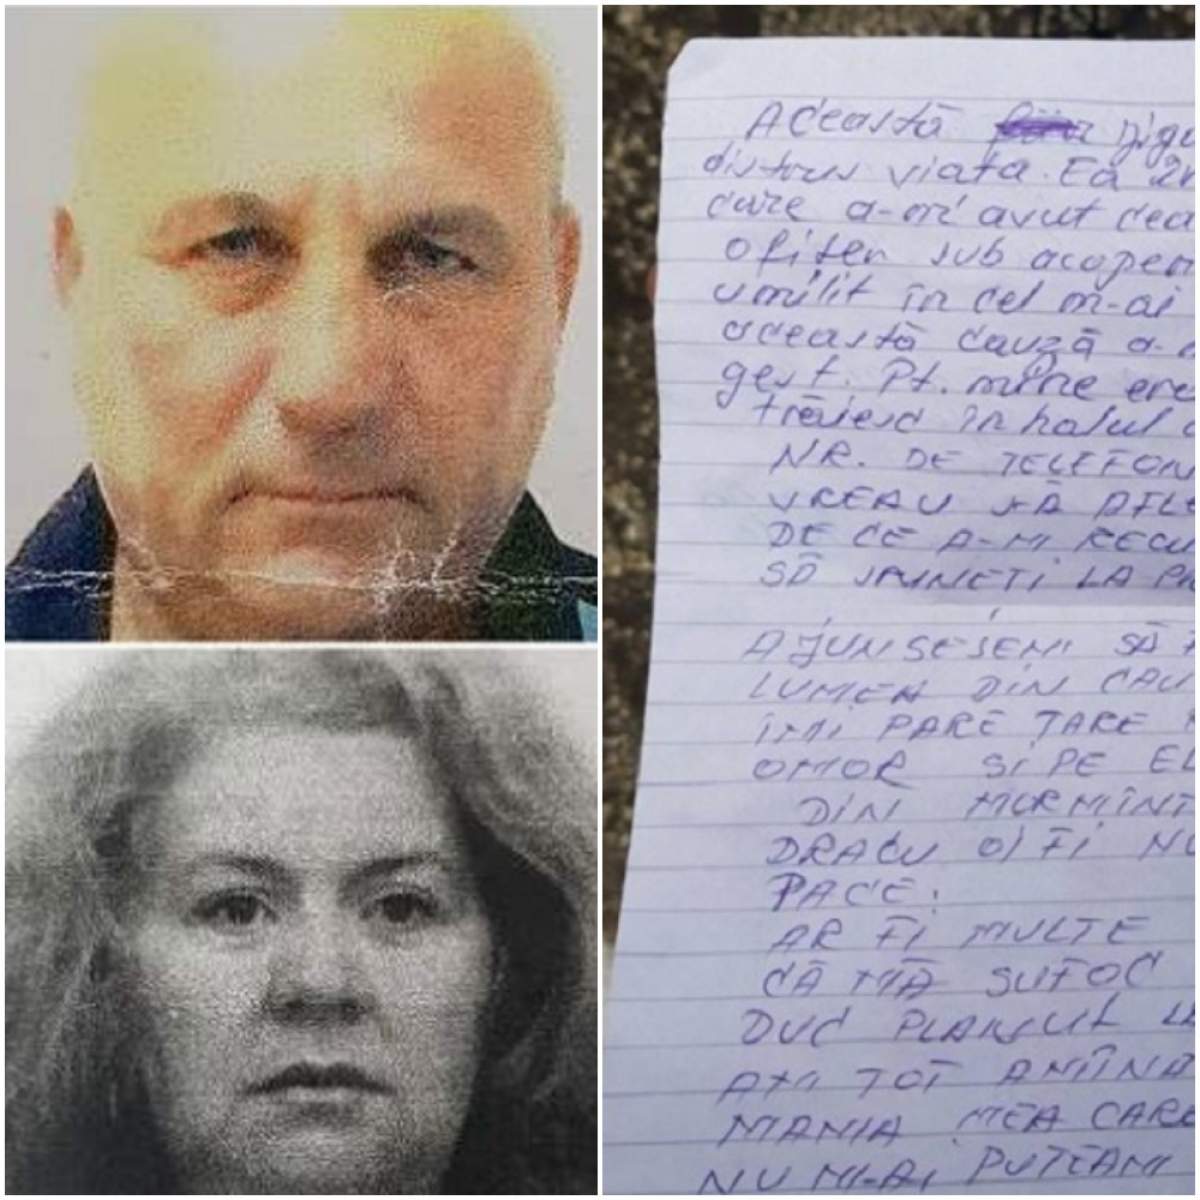 Această țiga
distrus viata. Ea în
care a-mi avut cea
ofiter sub acoper
umilit în cel m-ai
această cauză a-
gest. Pt. mine ere
trăiesc în halul
NR. DE TELEFON
VREAU SĂ AFLE
DE CE A-MI RECU
SĂ SPUNETI LA
AJUNSESEMI SĂ
LUMEA DIN CAU
ÎMI PARE TARE
OMOR SI PE EL
DIN MORMÎNT
DRACU OI FI NU
PACE.
AR FI MULTE
CĂ MĂ SUFOC
DUC PLANUL LA
AMI TOT AMÎNA
MANIA MEA CARE
NU MI-AI PUTEAMI